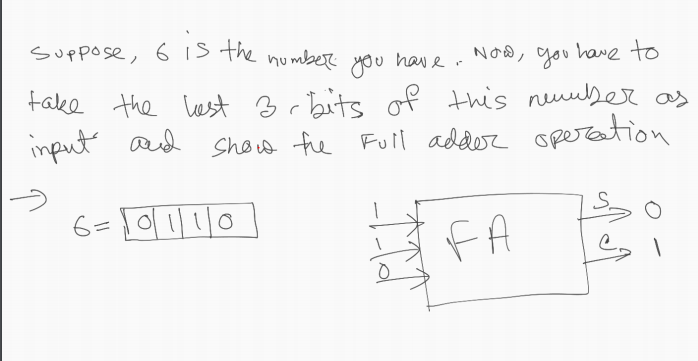 Suppose, 6 is the number you have. Now, you have to
take the last 3-bits of this number as
input and show the Full adder operation
→ 6 = 0 1 1 0
1
1
0
FA
S 0
C 1